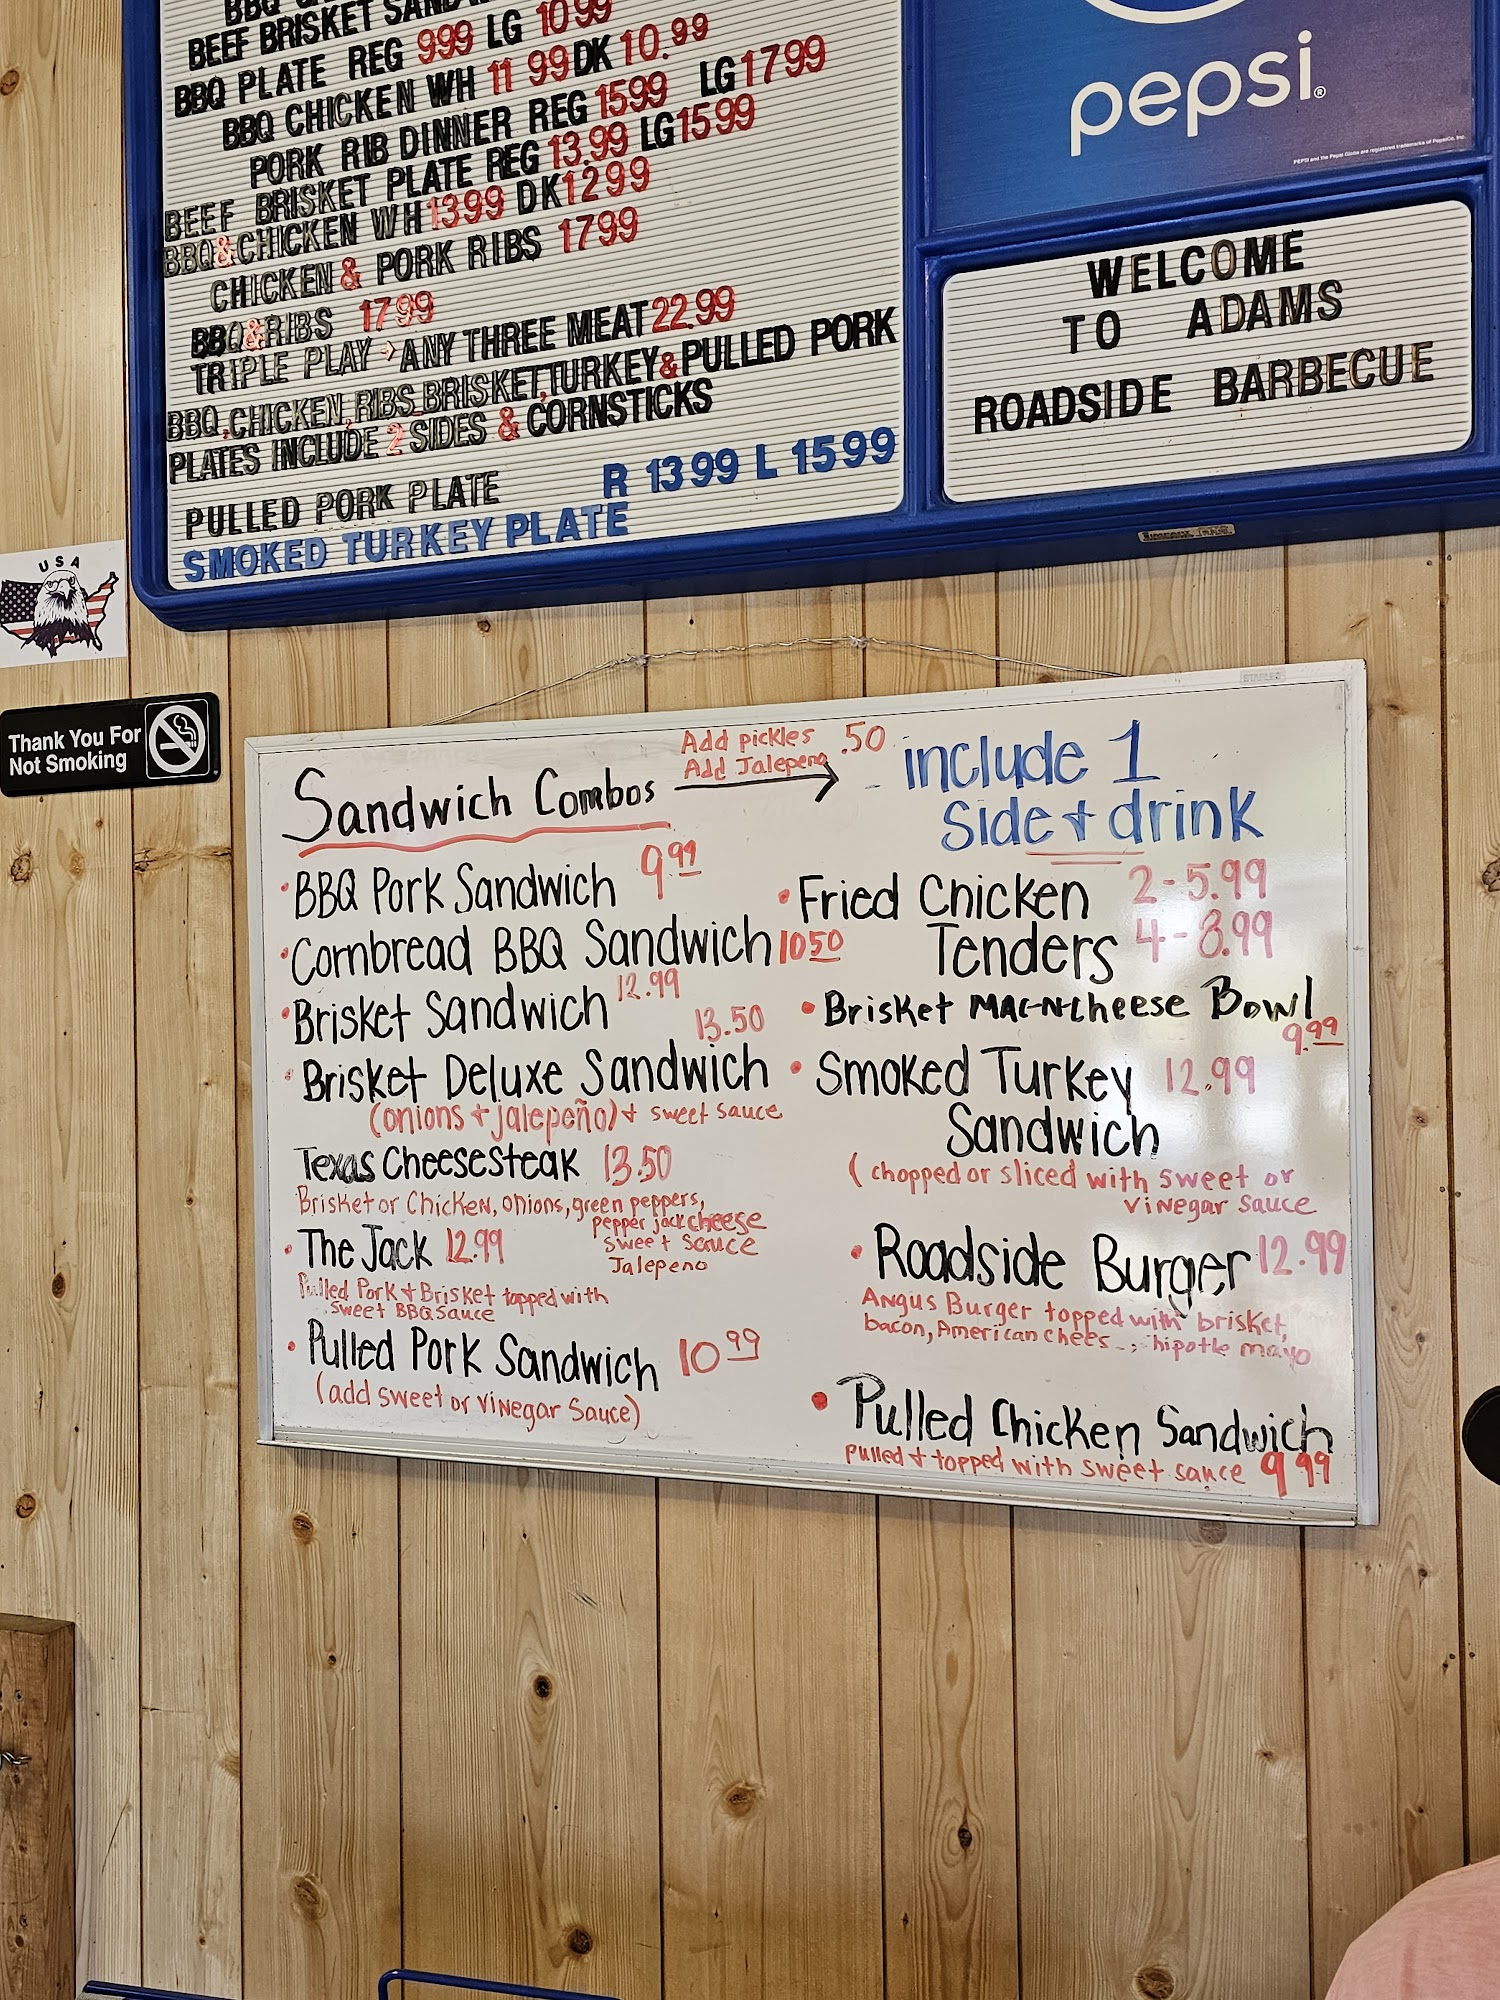 BBQ
BEEF BRISKET
BBQ PLATE REG 999 LG 1099
BBQ CHICKEN WH 11 99 DK 10.99
PORK RIB DINNER REG 1599 LG 1799
BEEF BRISKET PLATE REG 13.99 LG 1599
BBQ & CHICKEN WH 1399 DK 1299
CHICKEN & PORK RIBS 1799
BBQ & RIBS 1799
TRIPLE PLAY → ANY THREE MEAT 22.99
BBQ, CHICKEN, RIBS, BRISKET, TURKEY & PULLED PORK
PLATES INCLUDE 2 SIDES & CORNSTICKS
PULLED PORK PLATE R 1399 L 1599
SMOKED TURKEY PLATE
pepsi®
WELCOME
TO ADAMS
ROADSIDE BARBECUE
USA
Thank You For
Not Smoking
Sandwich Combos
Add pickles .50
Add Jalepeno
include 1
side + drink
• BBQ Pork Sandwich 9.99
• Cornbread BBQ Sandwich 10 50
• Brisket Sandwich 12.99
• Brisket Deluxe Sandwich 13.50
(onions + jalepeño) + sweet sauce
Texas Cheesesteak 13.50
Brisket or Chicken, onions, green peppers,
pepper jack cheese
sweet sauce
Jalepeno
• The Jack 12.99
Pulled Pork + Brisket topped with
sweet BBQ sauce
• Pulled Pork Sandwich 10 99
(add sweet or vinegar sauce)
• Fried Chicken 2 - 5.99
Tenders 4 - 8.99
• Brisket Mac-N-Cheese Bowl
9.99
• Smoked Turkey 12.99
Sandwich
(chopped or sliced with sweet or
vinegar sauce
• Roadside Burger 12.99
Angus Burger topped with brisket,
bacon, American chees hipotle mayo
• Pulled Chicken Sandwich
pulled + topped with sweet sauce 9 99